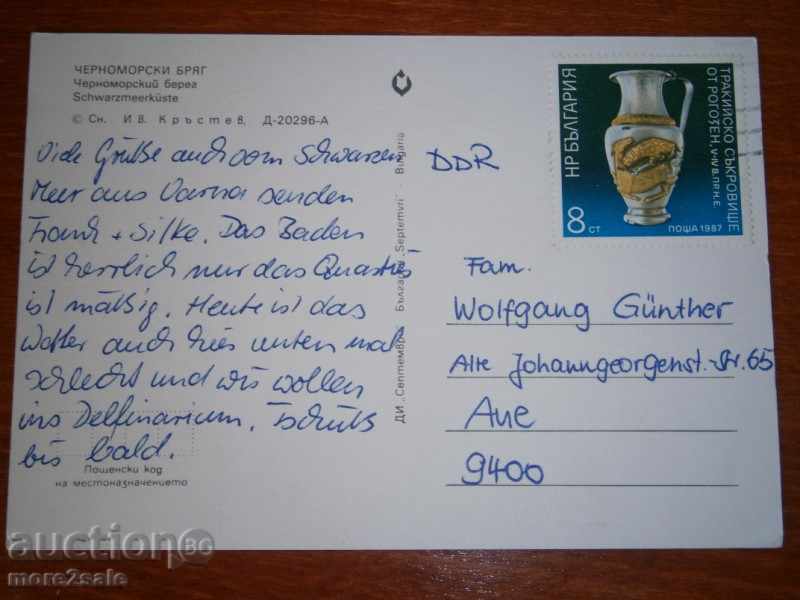 ЧЕРНОМОРСКИ БРЯГ
Черноморский берег
Schwarzmeerküste
© Сн. Ив. Кръстев, Д-20296-А
Viele Grüße auch vom Schwarzen
Meer aus Varna senden
Frank + Silke. Das Baden
ist herrlich nur das Quartier
ist mäßig. Heute ist das
Wetter auch hier unten mal
schlecht und wir wollen
ins Delfinarium. Tschüß
bis bald.
Пощенски код
на местоназначението
ДИ „Септември" България „Septemvri" - Bulgaria
НР БЪЛГАРИЯ
8 СТ
ТРАКИЙСКО СЪКРОВИЩЕ
ОТ РОГОЗЕН, V-IV В. ПР. Н. Е.
ПОЩА 1987
DDR
Fam.
Wolfgang Günther
Alte Johanngeorgenst.-Str. 65
Aue
9400
auctionBG
more2sale